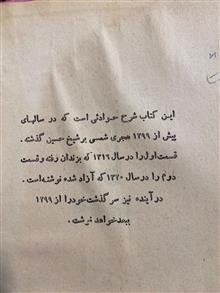 این کتاب شرح حوادثی است که در سالهای
پیش از ۱۲۹۹ هجری شمسی بر شیخ حسین گذشته.
قسمت اول را در سال ۱۳۱۶ که بزندان رفته و قسمت
دوم را در سال ۱۳۲۰ که آزاد شده نوشته‌است.
در آینده نیز سرگذشت خود را از ۱۲۹۹
ببعد خواهد نوشت.